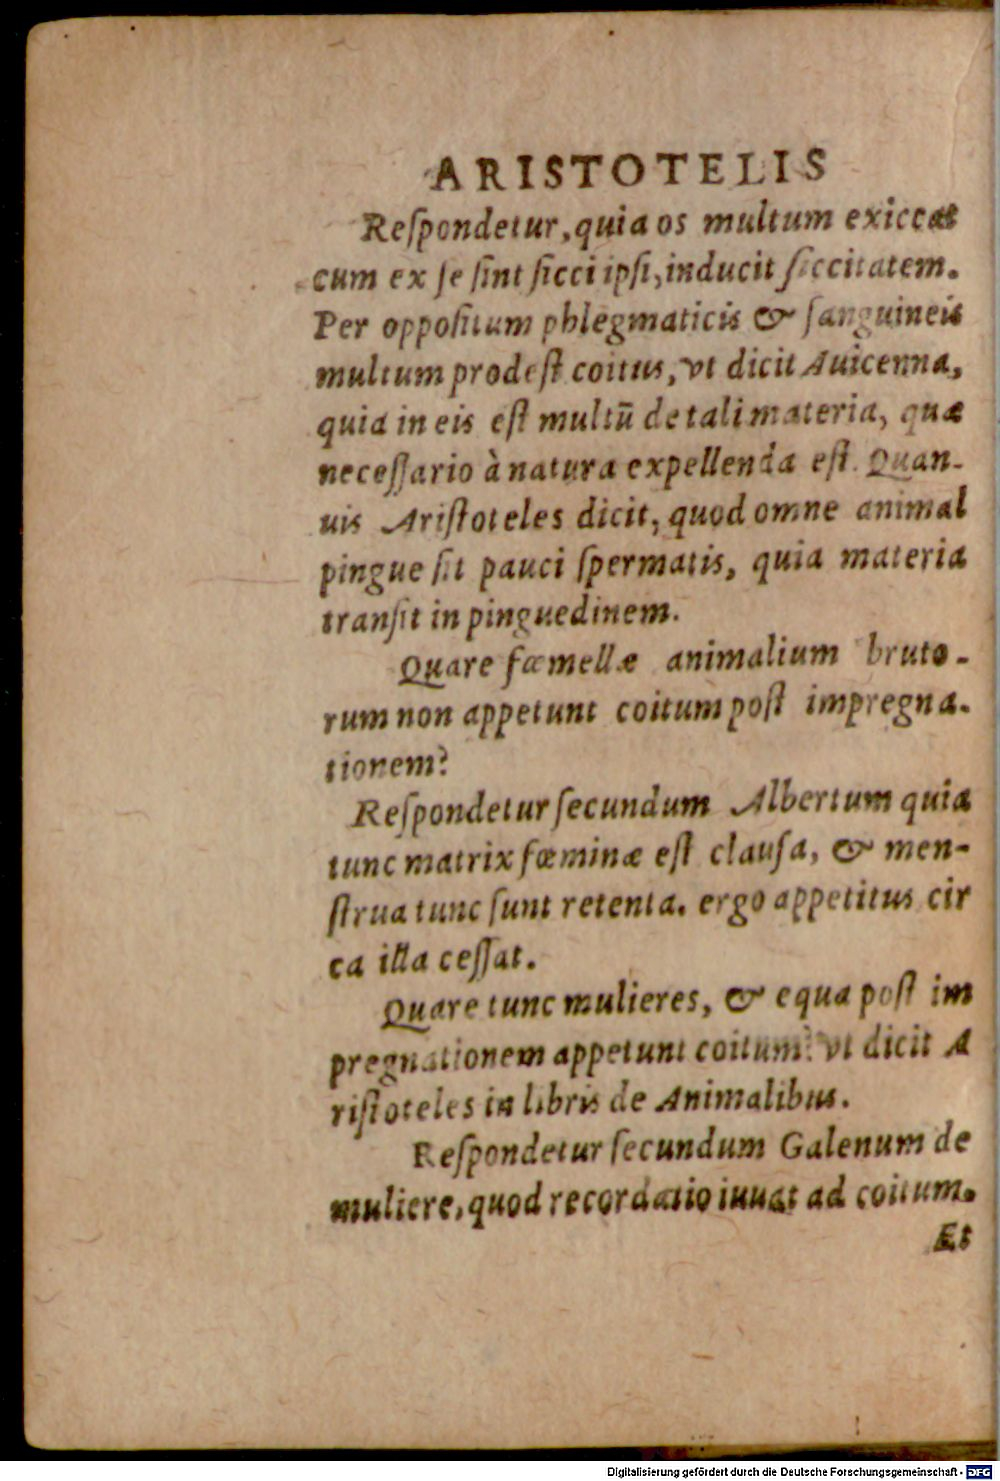 ARISTOTELIS
Reſpondetur, quia os multum exiccat
cum ex ſe ſint ſicci ipſi, inducit ſiccitatem.
Per oppoſitum phlegmaticis & ſanguineis
multum prodeſt coitus, vt dicit Auicenna,
quia in eis eſt multū de tali materia, quæ
neceſſario à natura expellenda eſt. Quan-
uis Ariſtoteles dicit, quod omne animal
pingue ſit pauci ſpermatis, quia materia
tranſit in pinguedinem.
Quare fœmellæ animalium bruto-
rum non appetunt coitum poſt impregna-
tionem?
Reſpondetur ſecundum Albertum quia
tunc matrix fœminæ eſt clauſa, & men-
ſtrua tunc ſunt retenta. ergo appetitus cir
ca illa ceſſat.
Quare tunc mulieres, & equa poſt im
pregnationem appetunt coitum? vt dicit A
riſtoteles in libris de Animalibus.
Reſpondetur ſecundum Galenum de
muliere, quod recordatio iuuat ad coitum.
Et
Digitalisierung gefördert durch die Deutsche Forschungsgemeinschaft - DFG